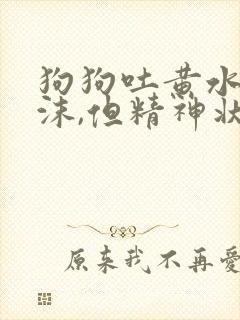 狗狗吐黄水
沫,但精神状
原来我不再爱